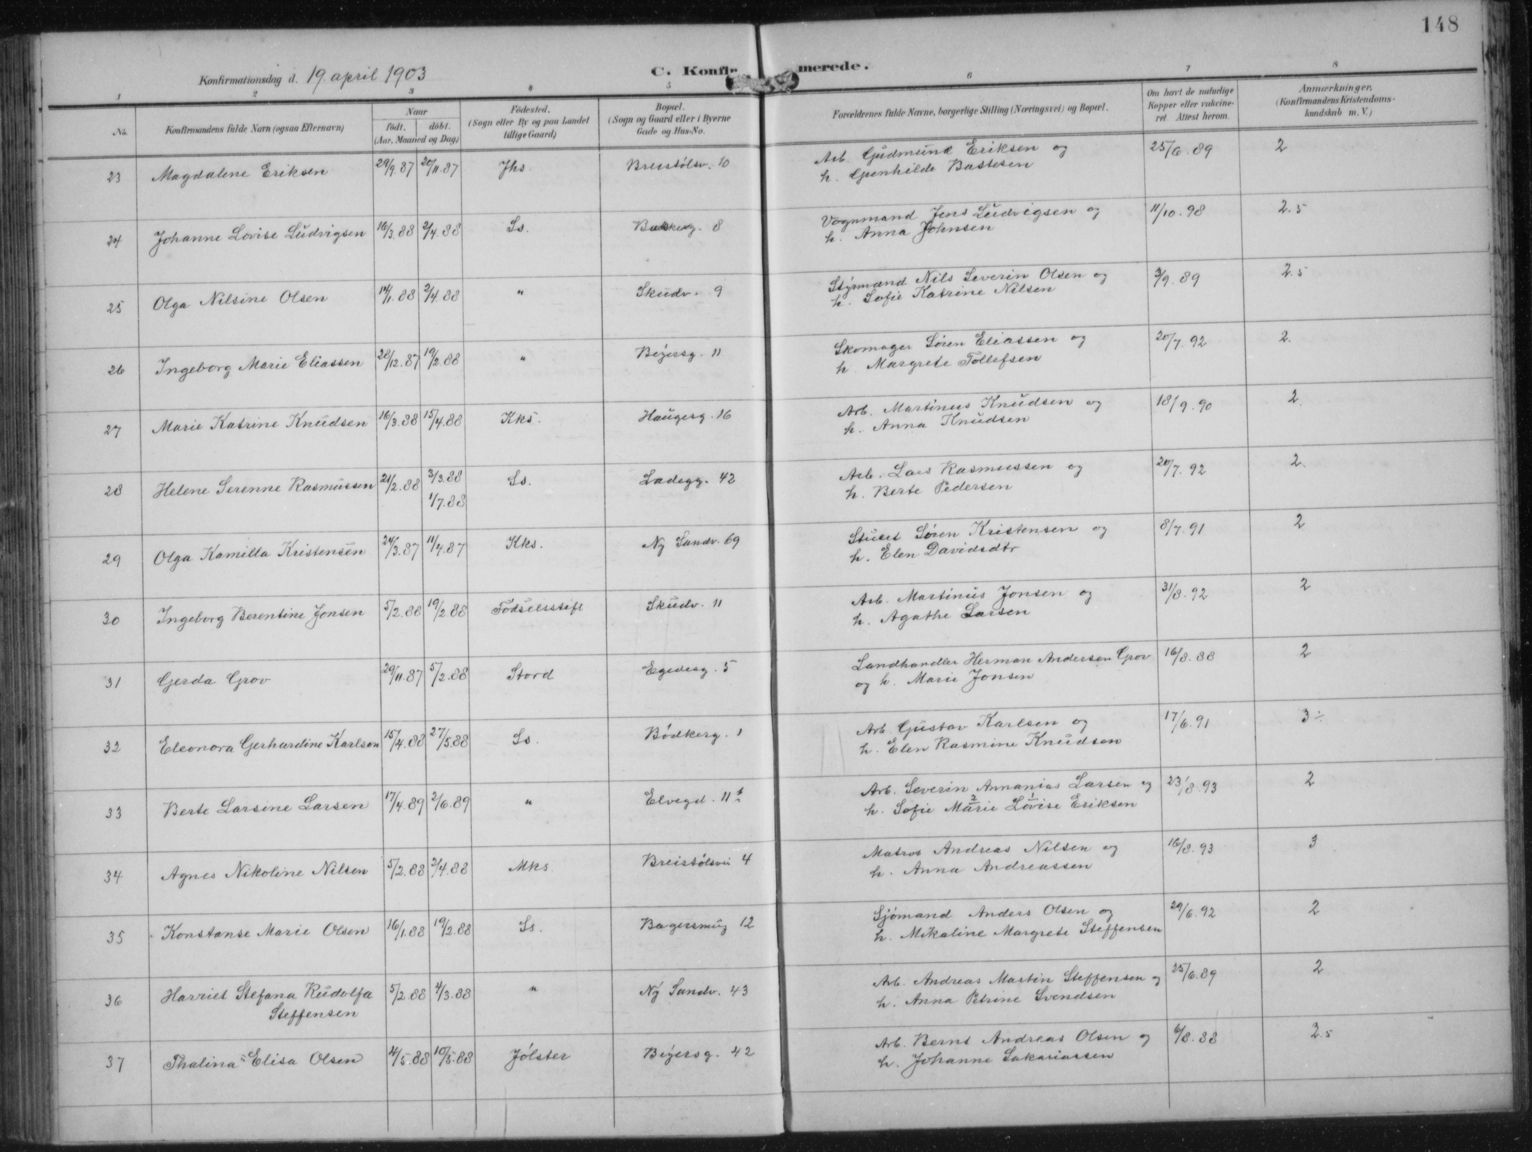 148
Konfirmationsdag d. 19. april 1903
C. Konfirmerede.
1 2 3 4 5 6 7 8
No. Konfirmandens fulde Navn (ogsaa Efternavn) Naar født. døbt. (Aar, Maaned og Dag) Fødested. (Sogn eller By og paa Landet tillige Gaard) Bopæl. (Sogn og Gaard eller i Byerne Gade og Hus-No. Forældrenes fulde Navne, borgerlige Stilling (Næringsvei) og Bopæl. Om havt de naturlige Kopper eller vaccineret. Attest herom. Anmærkninger. (Konfirmandens Kristendomskundskab m. V.)
23 Magdalene Eriksen 29/9.87 20/11.87 Jhs. Breistølsv. 10 Arb. Gudmund Eriksen og 25/6.89 2
h. Gunhilde Bastesen
24 Johanne Lovise Ludvigsen 16/3.88 2/4.88 Ss. 8 Vognmand Jens Ludvigsen og 11/10.98 2.5
h. Anna Johnsen
25 Olga Nilsine Olsen 14/1.88 2/4.88 " Skudv. 9 Styrmand Nils Severin Olsen og 3/9.89 2.5
h. Sofie Katrine Nilsen
26 Ingeborg Marie Eliassen 28/12.87 19/2.88 " Beyersg. 11 Skomager Søren Eliassen og 20/7.92 2.
h. Margrete Tollefsen
27 Marie Katrine Knudsen 16/3.88 15/4.88 Kks. Haugesg. 16 Arb. Martinus Knudsen og 18/9.90 2
h. Anna Knudsen
28 Helene Serenne Rasmussen 21/2.88 3/3.88 Ss. Ladegg. 42 Arb. Lars Rasmussen og 20/7.92 2.
1/7.88 h. Berte Pedersen
29 Olga Kamilla Kristensen 24/3.87 11/4.87 Kks. Ny Sandv. 69 Stuert Søren Kristensen og 8/7.91 2
h. Elen Davidsdtr
30 Ingeborg Berentine Jonsen 5/2.88 19/2.88 Fødselsstift Skudv. 11 Arb. Martinus Jonsen og 31/8.92 2
h. Agathe Larsen
31 Gerda Grov 29/11.87 5/2.88 Stord Egedesg. 5 Landhandler Herman Andersen Grov 16/8.88 2
og h. Marie Jonsen
32 Eleonora Gerhardine Karlsen 15/4.88 27/5.88 Ss. Bødkerg. 1 Arb. Gustav Karlsen og 17/6.91 3 ÷
h. Elen Rasmine Knudsen
33 Berte Larsine Larsen 17/4.89 2/6.89 " Elvegd. 11 Arb. Severin Annanias Larsen og 23/8.93 2
h. Sofie Marie Lovise Eriksen
34 Agnes Nikoline Nilsen 5/2.88 2/4.88 Mks Breistølsvei 4 Matros Andreas Nilsen og 16/8.93 3
h. Anna Andreassen
35 Konstanse Marie Olsen 16/1.88 19/2.88 Ss. Bagersmug 12 Sjømand Anders Olsen og 29/6.92 2
h. Mikaline Margrete Steffensen
36 Harriet Stefana Rudolfa 5/2.88 4/3.88 " Ny Sandv. 43 Arb. Andreas Martin Steffensen og 25/6.89 2
Steffensen h. Anna Petrine Svendsen
37 Thalina Elisa Olsen 4/5.88 10/5.88 Jølster Beyersg. 42 Arb. Bernt Andreas Olsen og 6/8.88 2.5
h. Johanne Sakariassen